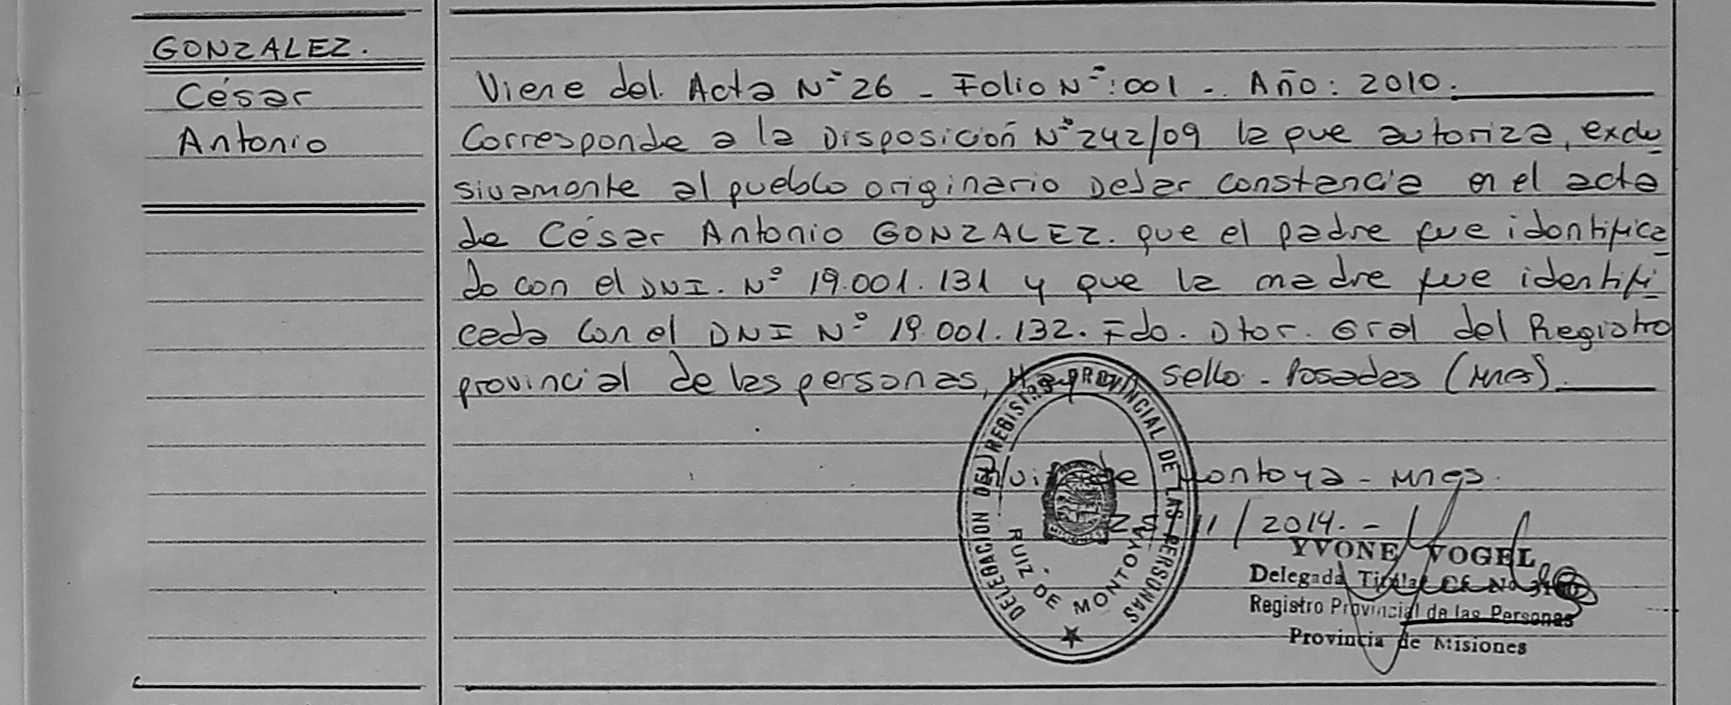 GONZALEZ.
César
Antonio
Viene del Acta Nº 26 - Folio Nº: 001 -. Año: 2010.
Corresponde a la Disposición Nº 242/09 la que autoriza, exclu
sivamente al pueblo originario Dejar constancia en el acta
de César Antonio GONZALEZ. que el padre fue identifica
do con el DNI. Nº 19.001.131 y que la madre fue identifi
cada con el DNI Nº 19.001.132. Fdo. Dtor. Gral del Registro
provincial de las personas, sello - Posadas (Mnes).
Ruiz de Montoya - Mnes.
11/2014.-
DELEGACION DEL REGISTRO PROVINCIAL DE LAS PERSONAS
RUIZ DE MONTOYA
YVONE VOGEL
Delegada Titular
Registro Provincial de las Personas
Provincia de Misiones